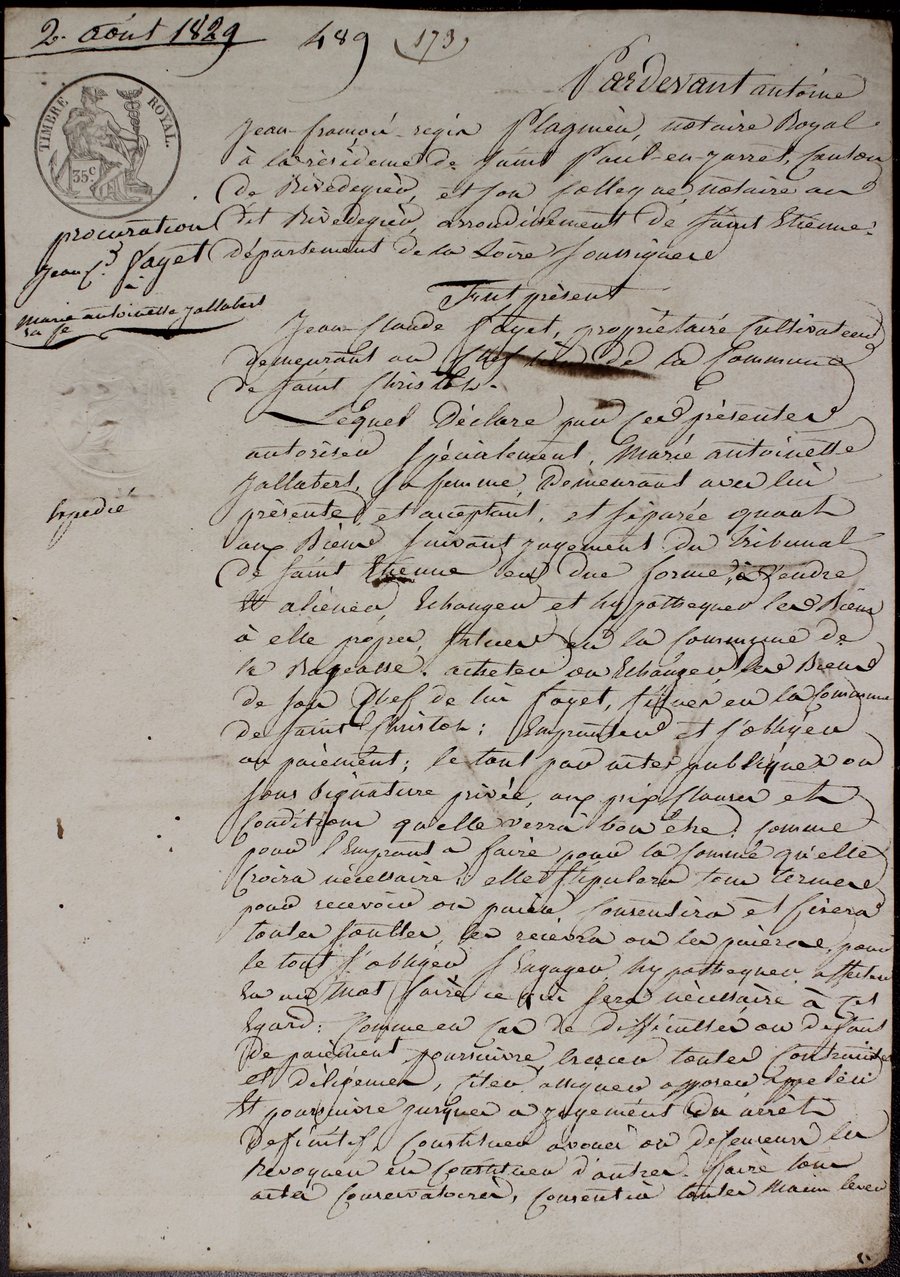 2. août 1829
489 (173)
TIMBRE ROYAL.
35c
procuration
Jean Cde fayet
à
Marie antoinette Jallabert
sa fe
Expedié
Pardevant antoine
Jean françois regis Plagnieu, notaire Royal
à la résidence de Saint Paul-en-jarret, Canton
de Rivedegier, et son Collegue, notaire au
dit Rivedegier, arrondissement de Saint Etienne,
département de la Loire soussignés
Fut présent
Jean Claude fayet, propriétaire Cultivateur
demeurant au de la Commune
de Saint Christoh.
Lequel Déclare par ces présentes
autoriser Spécialement, Marie antoinette
Jallabert, sa femme, Demeurant avec lui
présente et acceptant, et séparée quant
aux Biens suivant jugement du tribunal
de Saint Etienne en due forme, à vendre
Et aliener Echanger et hypothequer les Biens
à elle propres, situés en la Commune de
la . acheter ou Echanger les Biens
de son Chef de lui fayet, situés en la Commune
de Saint Christoh; Emprunter et s'obliger
au paiement; le tout par actes publiques ou
sous signature privée, aux prix Clauses et
Conditions qu'elle verra bon être; Comme
pour l'Emprunt à faire pour la somme qu'elle
Croira nécessaire; elle Stipulera tous termes
pour recevoir ou paier Consentira et fixera
toutes soultes, les recevra ou les paiera, pour
le tout s'obliger s'Engager, hypothequer, affecter
En un Mot faire ce qui sera nécessaire à cet
Egard; Comme en Cas de difficultés ou defaut
De paiement poursuivre Exercer toutes Contraintes
et diligences, citer, assigner opposer appeller
Et poursuivre jusques a jugement ou arrêt
definitif, Constituer avoués ou defenseurs les
Revoquer en Constituer d'autres. faire tous
actes Conservatoires, Consentir toutes Main levées